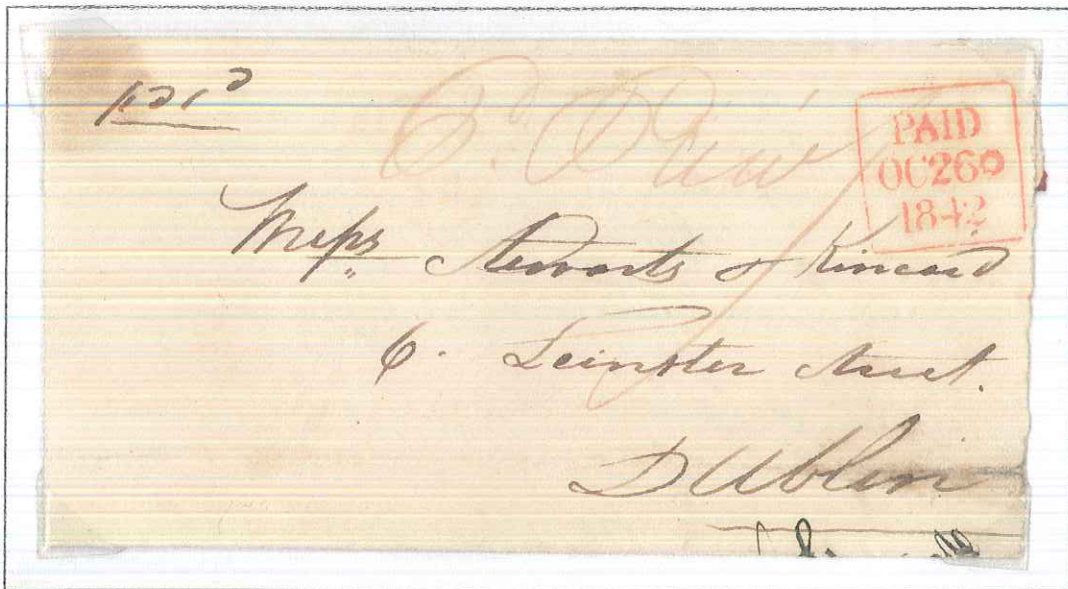 paid
PAID
OC 26
1842
Messrs Stewarts & Kincaid
6. Leinster Street.
Dublin